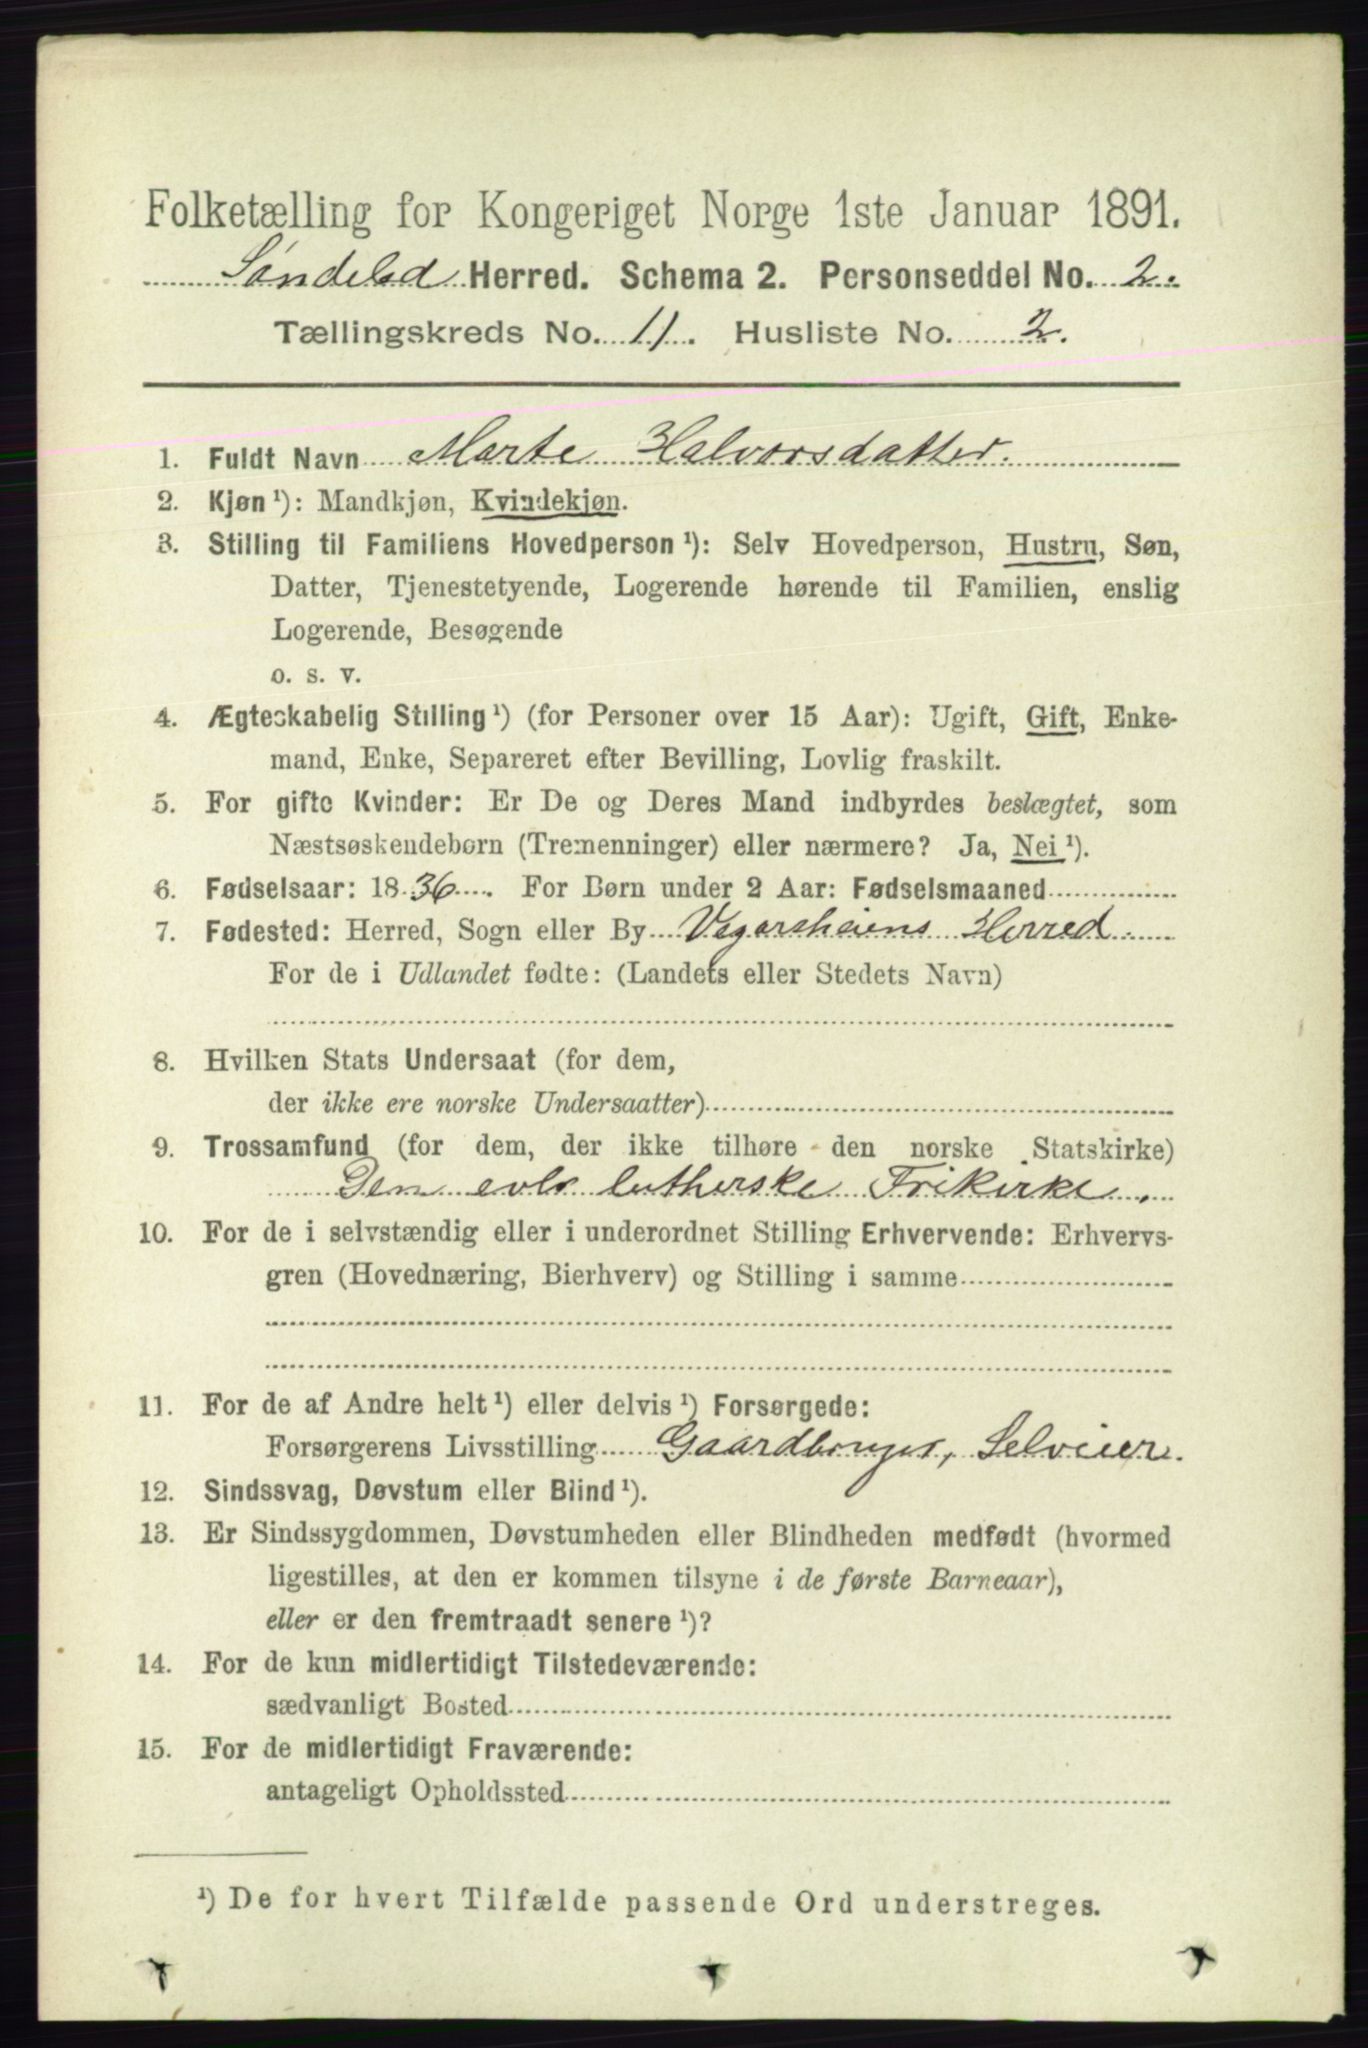 Folketælling for Kongeriget Norge 1ste Januar 1891.
Søndeled Herred. Schema 2. Personseddel No. 2.
Tællingskreds No. 11. Husliste No. 2.
1. Fuldt Navn Marte Halvorsdatter.
2. Kjøn ¹): Mandkjøn, Kvindekjøn.
3. Stilling til Familiens Hovedperson ¹): Selv Hovedperson, Hustru, Søn,
Datter, Tjenestetyende, Logerende hørende til Familien, enslig
Logerende, Besøgende
o. s. v.
4. Ægteskabelig Stilling ¹) (for Personer over 15 Aar): Ugift, Gift, Enke-
mand, Enke, Separeret efter Bevilling, Lovlig fraskilt.
5. For gifte Kvinder: Er De og Deres Mand indbyrdes beslægtet, som
Næstsøskendebørn (Tremenninger) eller nærmere? Ja, Nei ¹).
6. Fødselsaar: 1836. For Børn under 2 Aar: Fødselsmaaned
7. Fødested: Herred, Sogn eller By Vegarsheiens Herred.
For de i Udlandet fødte: (Landets eller Stedets Navn)
8. Hvilken Stats Undersaat (for dem,
der ikke ere norske Undersaatter)
9. Trossamfund (for dem, der ikke tilhøre den norske Statskirke)
Den evl. lutherske Frikirke.
10. For de i selvstændig eller i underordnet Stilling Erhvervende: Erhvervs-
gren (Hovednæring, Bierhverv) og Stilling i samme
11. For de af Andre helt ¹) eller delvis ¹) Forsørgede:
Forsørgerens Livsstilling Gaardbruger, Selveier.
12. Sindssvag, Døvstum eller Blind ¹).
13. Er Sindssygdommen, Døvstumheden eller Blindheden medfødt (hvormed
ligestilles, at den er kommen tilsyne i de første Barneaar),
eller er den fremtraadt senere ¹)?
14. For de kun midlertidigt Tilstedeværende:
sædvanligt Bosted
15. For de midlertidigt Fraværende:
antageligt Opholdssted
¹) De for hvert Tilfælde passende Ord understreges.